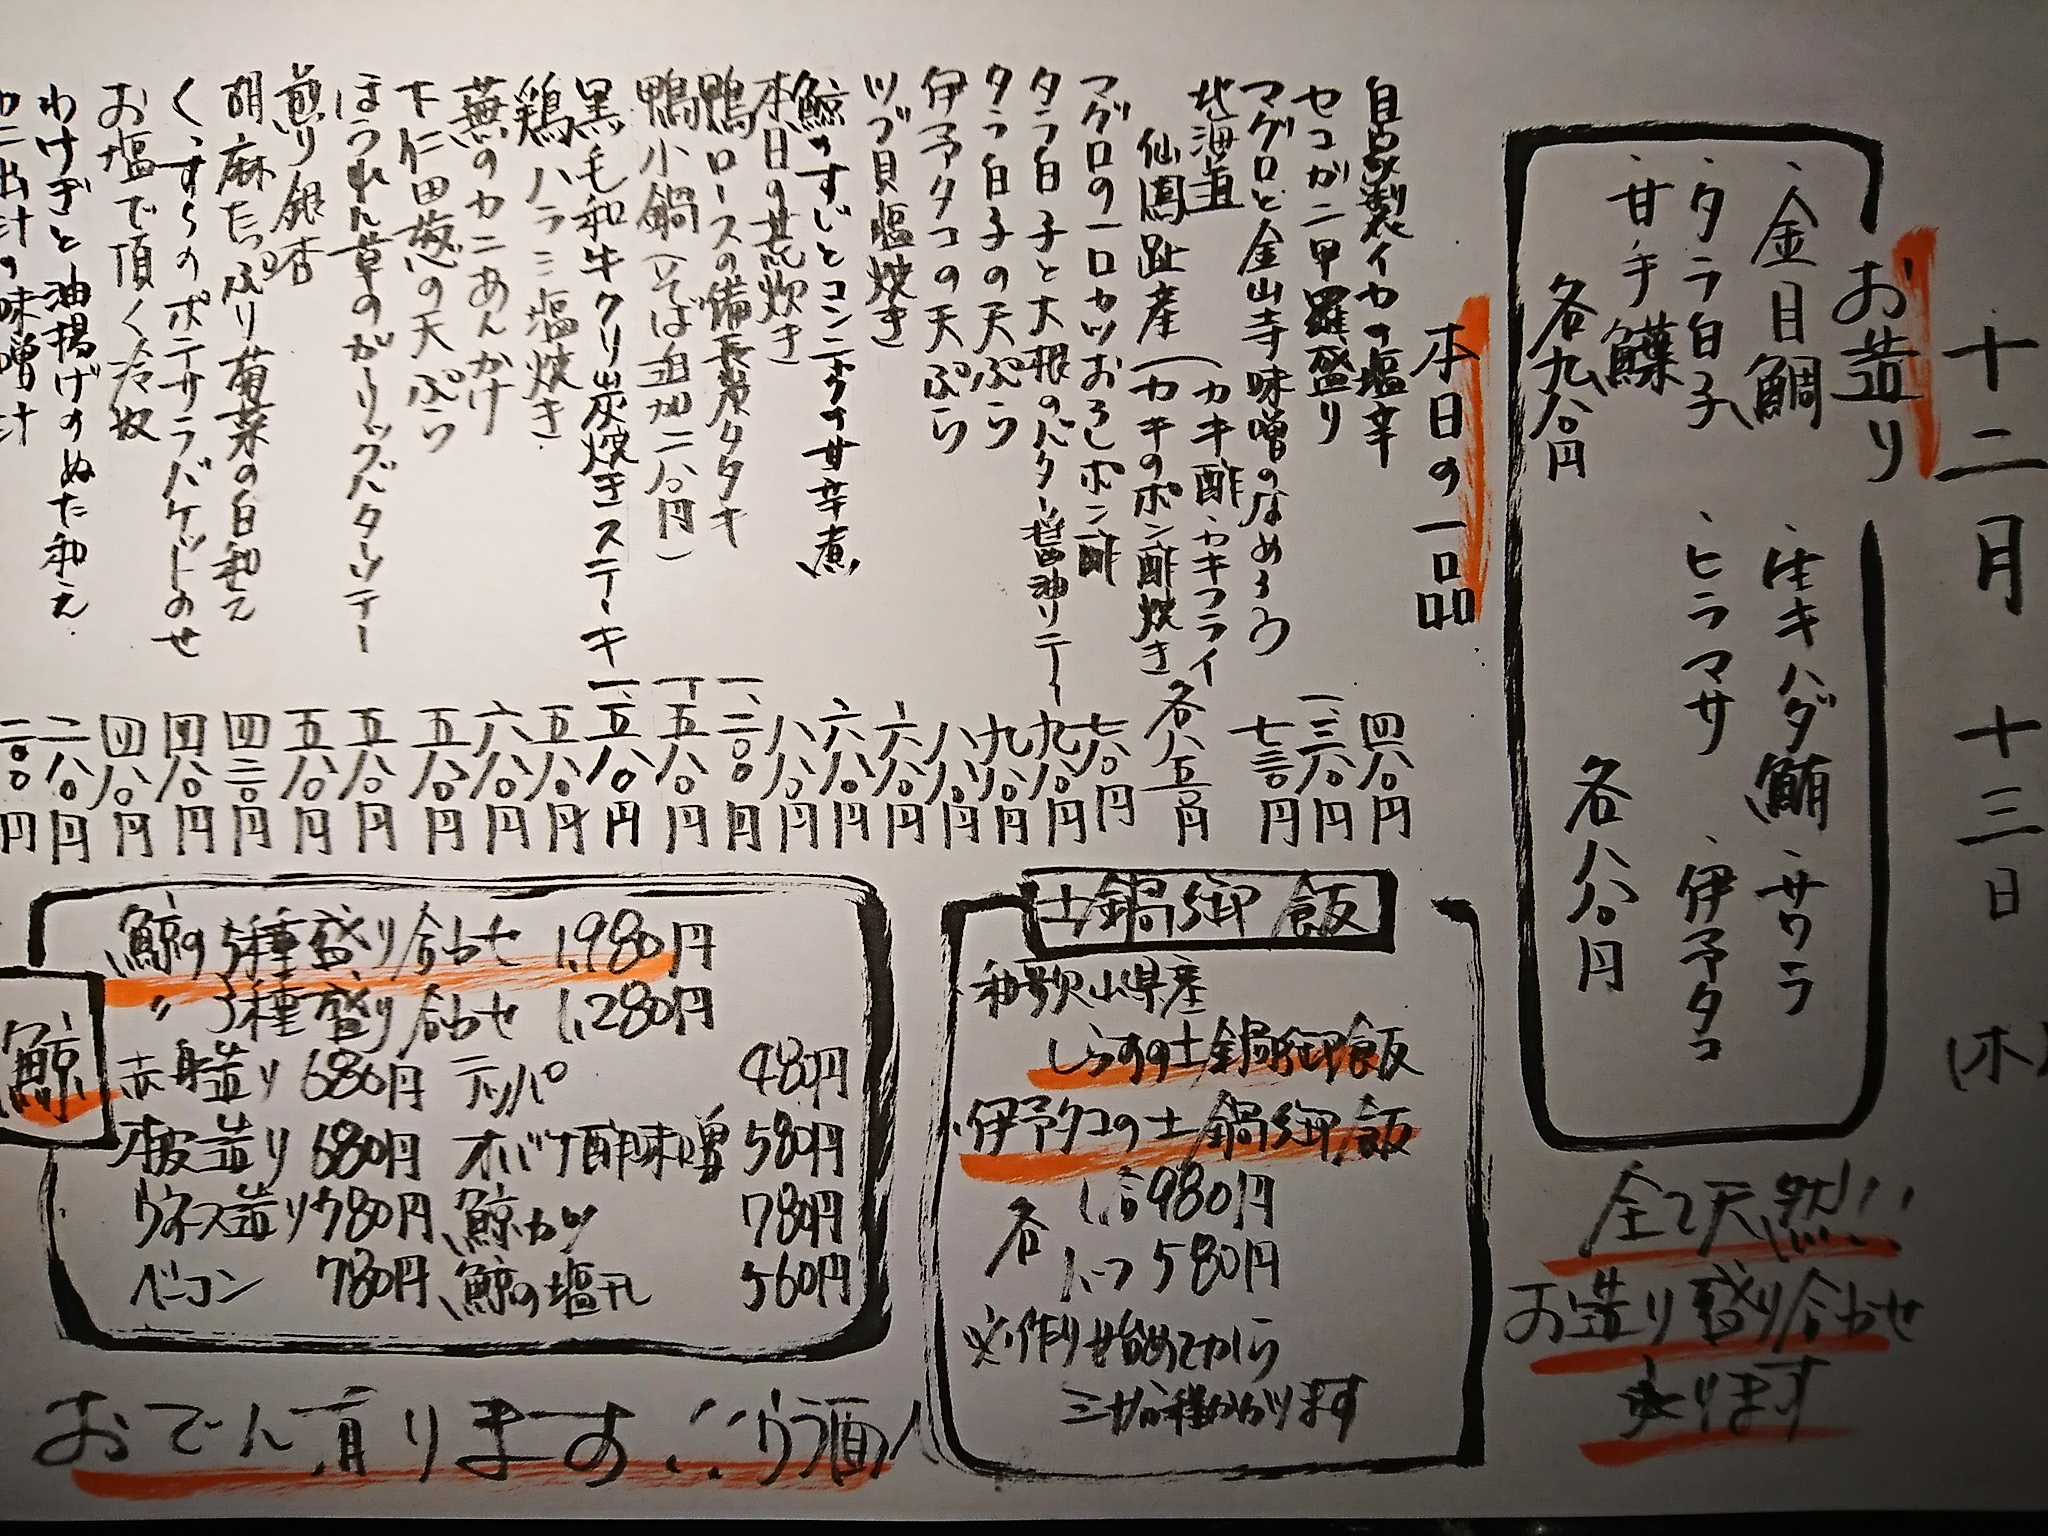 十二月十三日(木)
お造り
・金目鯛
・タラ白子
・甘手鰈
各九八〇円
・生キハダ鮪
・サワラ
・ヒラマサ
・伊予タコ
各八八〇円
全て天然!!
お造り盛り合わせ
承ります
本日の一品
自家製イカの塩辛 四八〇円
セコガニ甲羅盛り 一、三八〇円
マグロと金山寺味噌のなめろう 七三〇円
北海道 仙鳳趾産(カキ酢・カキフライ
カキのポン酢焼き 各八五〇円
マグロの一口カツおろしポン酢 七八〇円
タラ白子と大根のバター醤油ソテー 九八〇円
タラ白子の天ぷら 九八〇円
伊予タコの天ぷら 八八〇円
ツブ貝塩焼き 六八〇円
鯨のすじとコンニャクの甘辛煮 六八〇円
本日の荒炊き 八八〇円
鴨ロースの備長炭タタキ 一、二〇〇円
鴨小鍋(そば追加二八〇円) 一、五八〇円
黒毛和牛クリ炭焼きステーキ 一、五八〇円
鶏ハラミ塩焼き 五八〇円
蕪のカニあんかけ 六八〇円
下仁田葱の天ぷら 五八〇円
ほうれん草のガーリックバターソテー 五八〇円
煎り銀杏 五八〇円
胡麻たっぷり菊菜の白和え 四二〇円
くっすらのポテサラバケットのせ 四八〇円
お塩で頂く冷奴 四八〇円
わけぎと油揚げのぬた和え 二八〇円
カニ出汁の味噌汁 二〇〇円
土鍋御飯
和歌山県産
しらすの土鍋御飯
・伊予タコの土鍋御飯
各 1合980円
1/2つ580円
※作り始めてから
三十分程かかります
鯨
鯨の5種盛り合わせ 1,980円
〃 3種盛り合わせ 1,280円
赤身造り 680円 テッパ 480円
本皮造り 680円 オバケ酢味噌 580円
ウネス造り 780円 鯨カツ 780円
ベーコン 780円 鯨の塩タレ 560円
おでん有ります!!